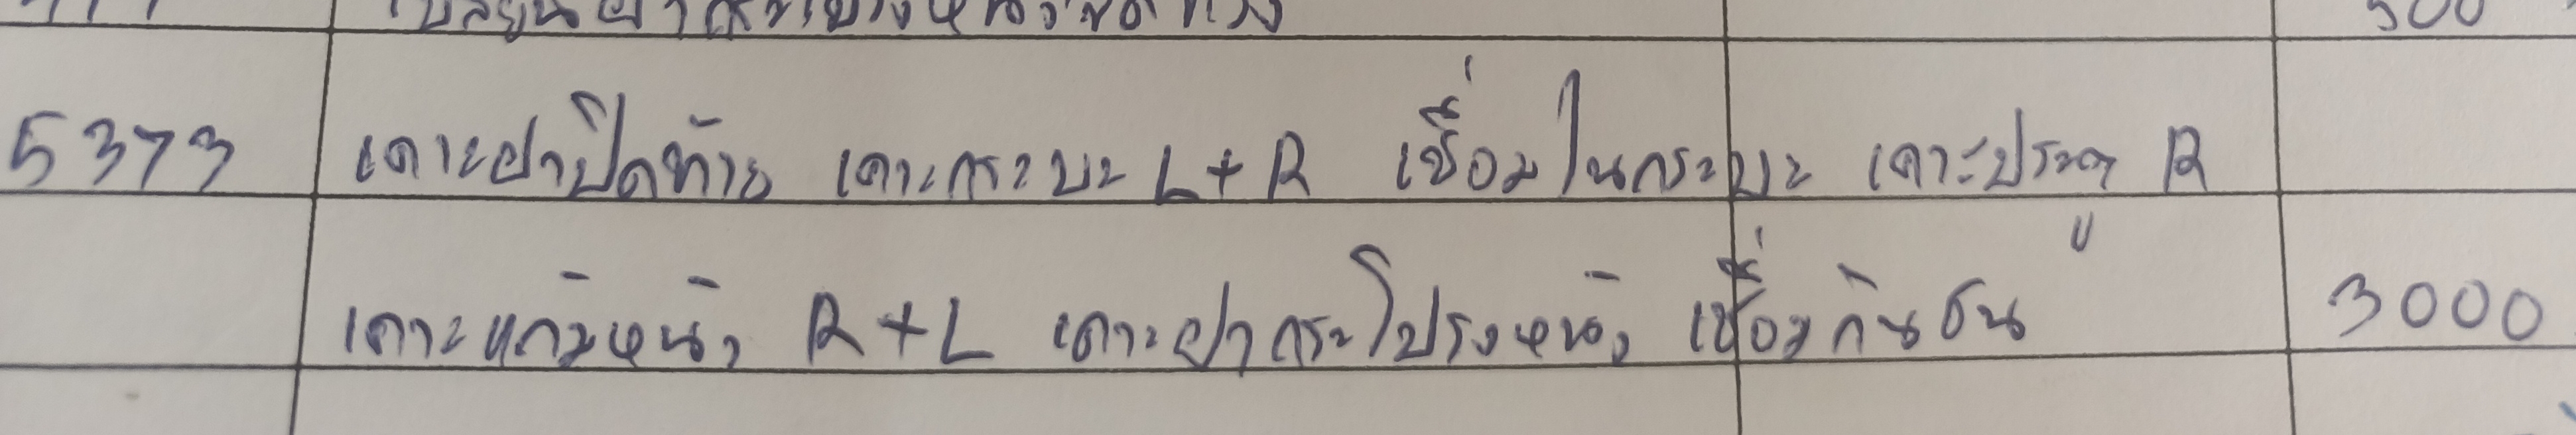 เปลี่ยนฝากระโปรงหน้า 500
5373 เคาะฝาปิดท้าย เคาะกระบะ L+R เชื่อมในกระบะ เคาะประตู R
เคาะแก้มหน้า R+L เคาะฝากระโปรงหน้า เชื่อมกันชน 3000